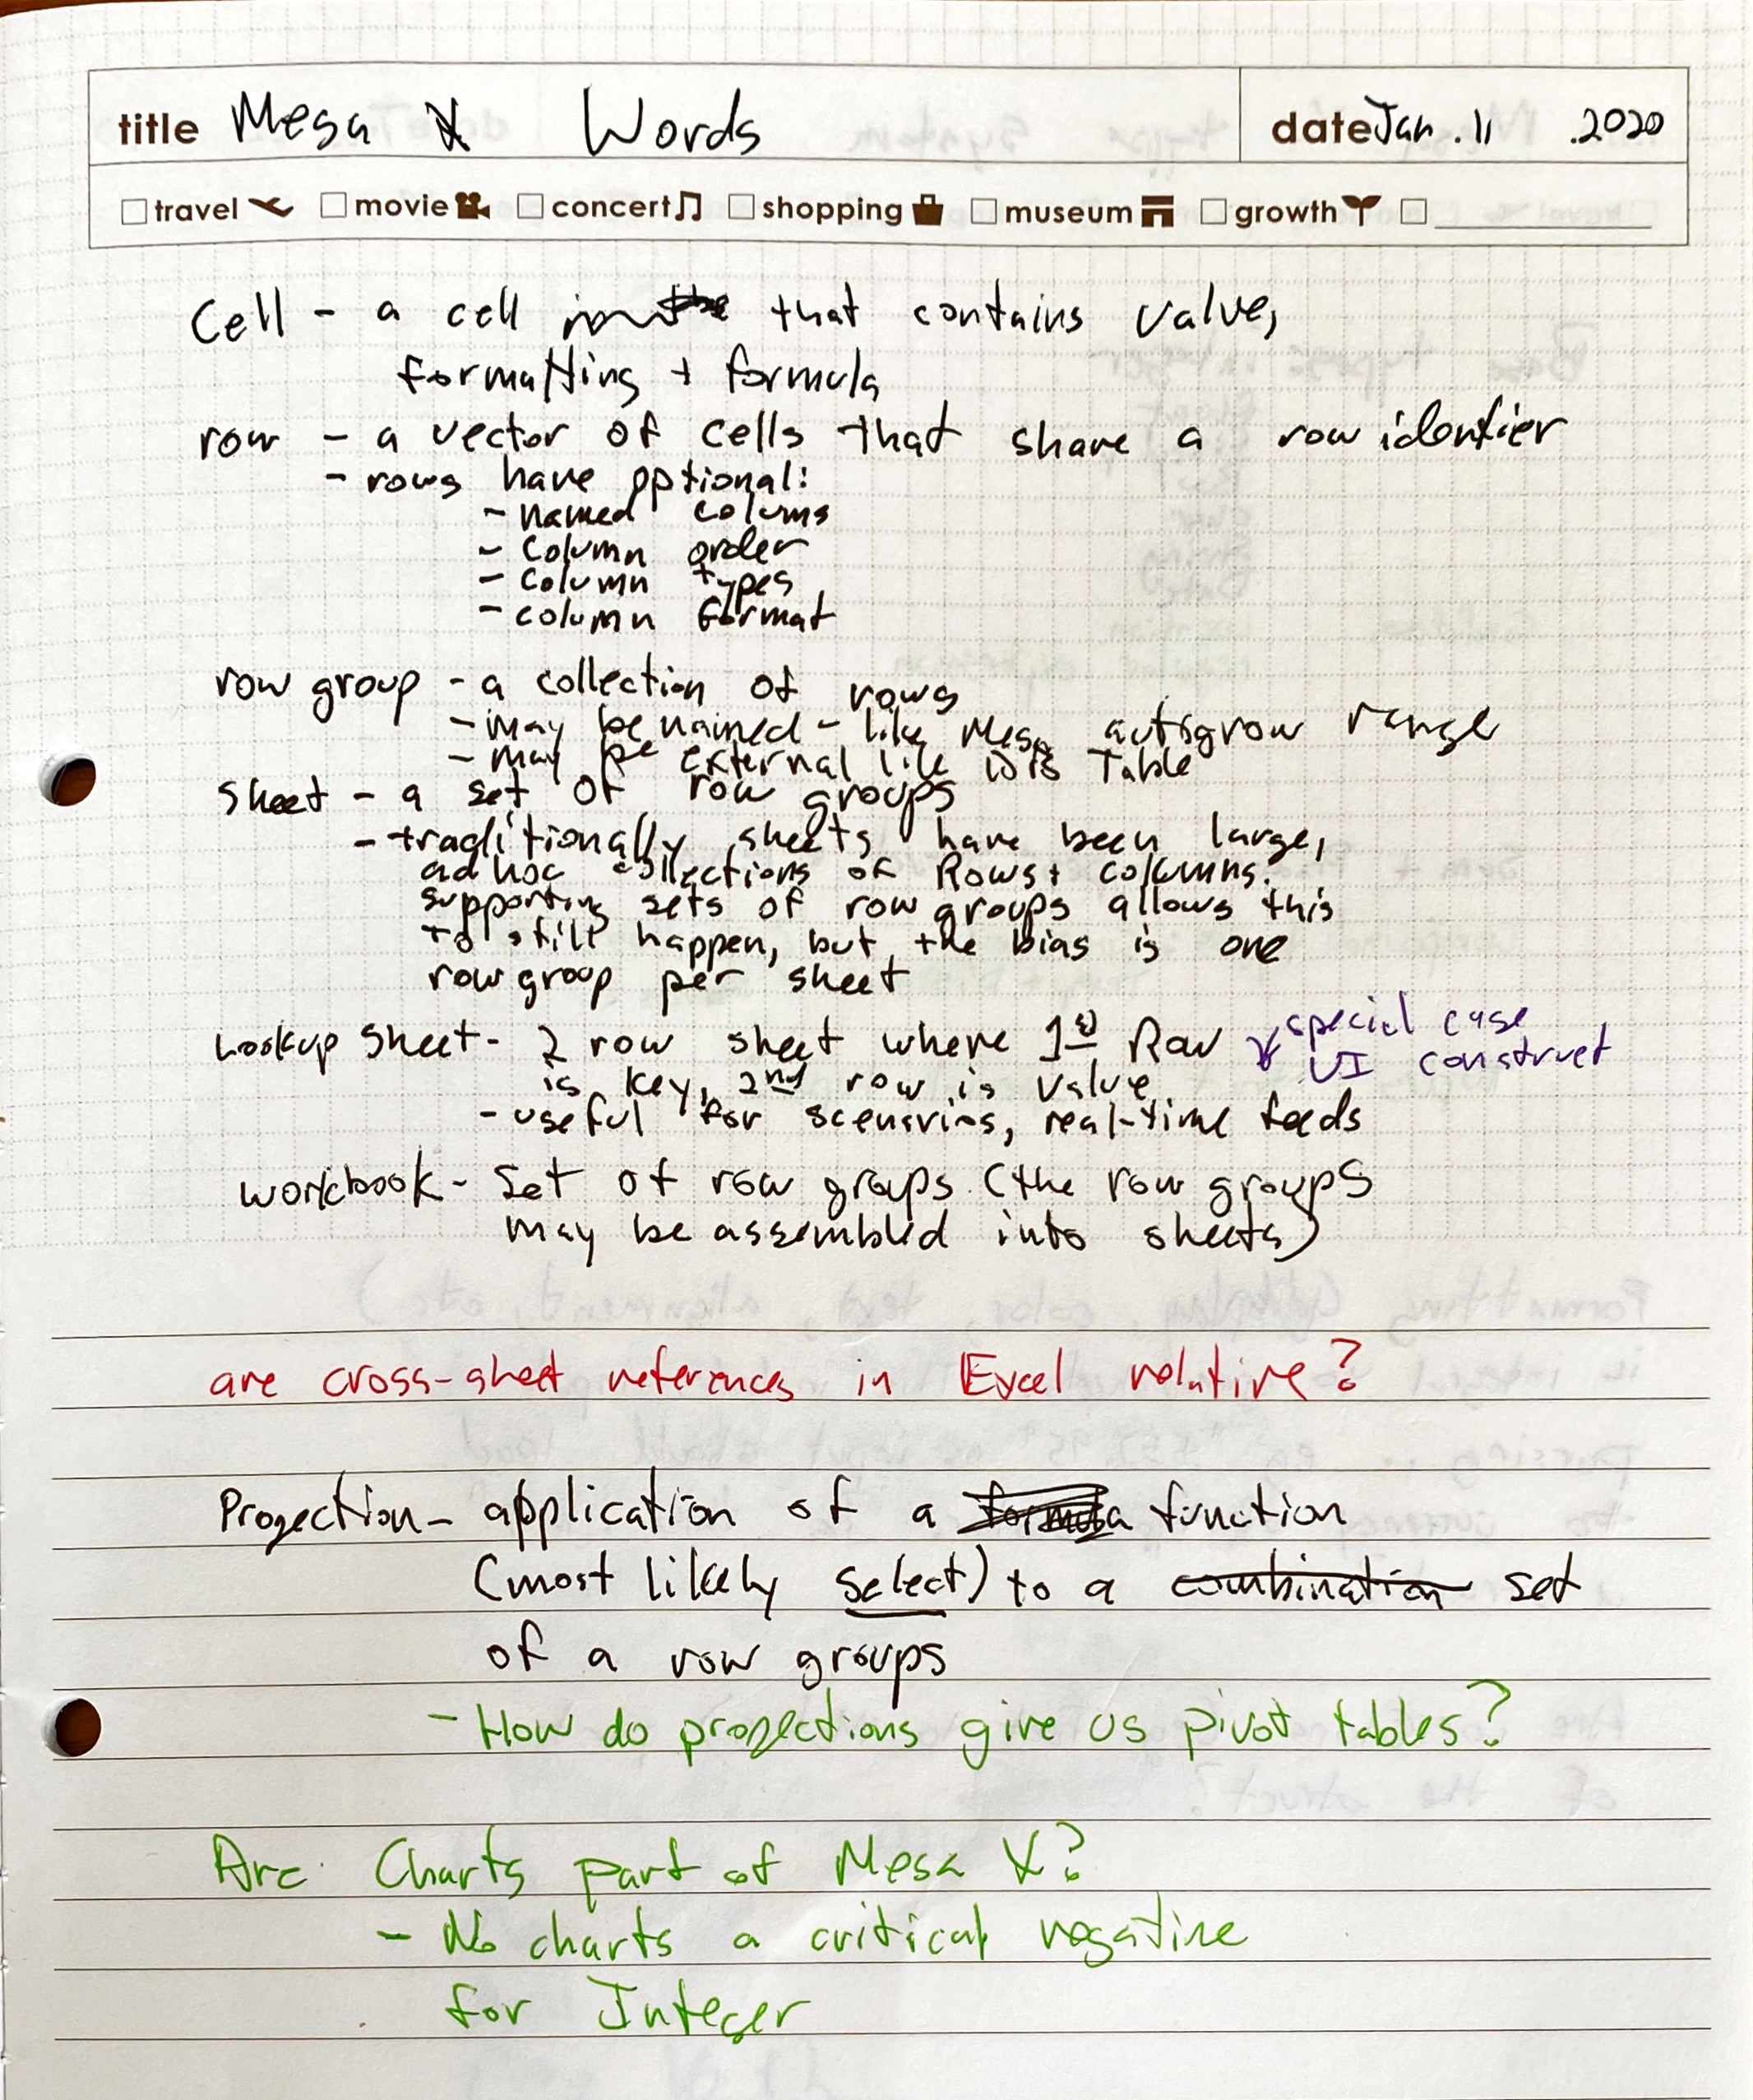 title Mesa X Words
date Jan. 11 .2020
travel movie concert shopping museum growth
Cell - a cell that contains value,
formatting + formula
row - a vector of cells that share a row identier
- rows have optional:
- named colums
- column order
- column types
- column format
row group - a collection of rows
- may be named - like Mesa autogrow range
- may be external like Table
Sheet - a set of row groups
- traditionally sheets have been large,
ad hoc collections of Rows + columns.
supporting sets of row groups allows this
to still happen, but the bias is one
row group per sheet
Lookup Sheet - 2 row sheet where 1st Row
special case
UI construct
is key, 2nd row is value
- useful for scenarios, real-time feeds
workbook - Set of row groups (the row groups
may be assembled into sheets)
are cross-sheet references in Excel relative?
Projection - application of a formula function
(most likely select) to a combination set
of a row groups
- How do projections give us pivot tables?
Are Charts part of Mesa X?
- No charts a critical negative
for Integer